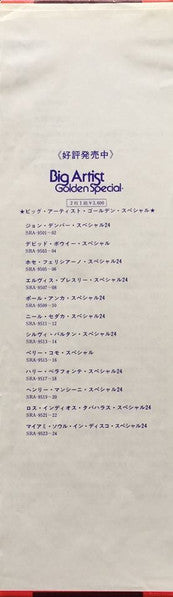 〈好評発売中〉
Big Artist
Golden Special
2枚1組¥3,600
★ビッグ・アーティスト・ゴールデン・スペシャル★
ジョン・デンバー・スペシャル24
SRA-9501〜02
デビッド・ボウイー・スペシャル
SRA-9503〜04
ホセ・フェリシアーノ・スペシャル24
SRA-9505〜06
エルヴィス・プレスリー・スペシャル24
SRA-9507〜08
ポール・アンカ・スペシャル24
SRA-9509〜10
ニール・セダカ・スペシャル24
SRA-9511〜12
シルヴィ・バルタン・スペシャル24
SRA-9513〜14
ペリー・コモ・スペシャル
SRA-9515〜16
ハリー・ベラフォンテ・スペシャル24
SRA-9517〜18
ヘンリー・マンシーニ・スペシャル24
SRA-9519〜20
ロス・インディオス・タバハラス・スペシャル24
SRA-9521〜22
マイアミ・ソウル・イン・ディスコ・スペシャル24
SRA-9523〜24